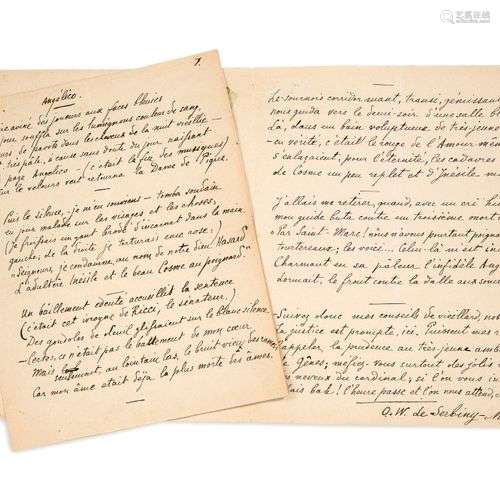 艺典
yidianart.com
7.
Angélico.
avinés des joueurs aux faces bleuies
jour souffla sur les lumignons couleur de sang,
le pavots dans les cheveux de la nuit vieillie —
très pâle, à cause sans doute du jour naissant
page Angélico — (c'était la fin des musiques)
le velours vert retourna la Dame de Piques.
Puis le silence, je m'en souviens — tomba soudain
en jour malade sur les visages et les choses,
(Je fripais un gant brodé d'incarnat dans la main
gauche, de la droite je torturais une rose)
Seigneurs, je condamne, au nom de notre Dieu Hasard
L'adultère Inésile et le beau Cosme au poignard.
Un bâillement édenté accueillit la sentence
(c'était cet ivrogne de Ricci, le sénateur)
Des gondoles de deuil glissaient sur le blanc silence
Certes, ce n'était pas le battement de mon cœur
Mais seulement, au lointain las, le bruit vieux des rames
Car mon âme était déjà la plus morte des âmes.
Le souverain corridor suant, transi, gémissant
nous guida vers le demi-soir d'une salle
Là, dans un bain voluptueux de très jeune
en vérité, c'était le rouge de l'Amour
S'enlaçaient, pour l'éternité, les cadavres
de Cosme un peu replet et d'Inésile
J'allais me retirer, quand, avec un cri
mon guide buta contre un troisième mort
"Par Saint-Marc! nous n'avons pourtant
tourtereaux, les voici... Celui-là m'est
Charmant en sa pâleur l'infidèle
dormait, le front contre la dalle aux
Suivez donc mes conseils de vieillard,
la justice est prompte, ici. Puissent mes
rappeler la prudence au très jeune
de Gênes; méfiez-vous surtout des jolis
neveux du cardinal, si l'on vous
mais bah! l'heure passe et l'on nous attend,
O. W. de